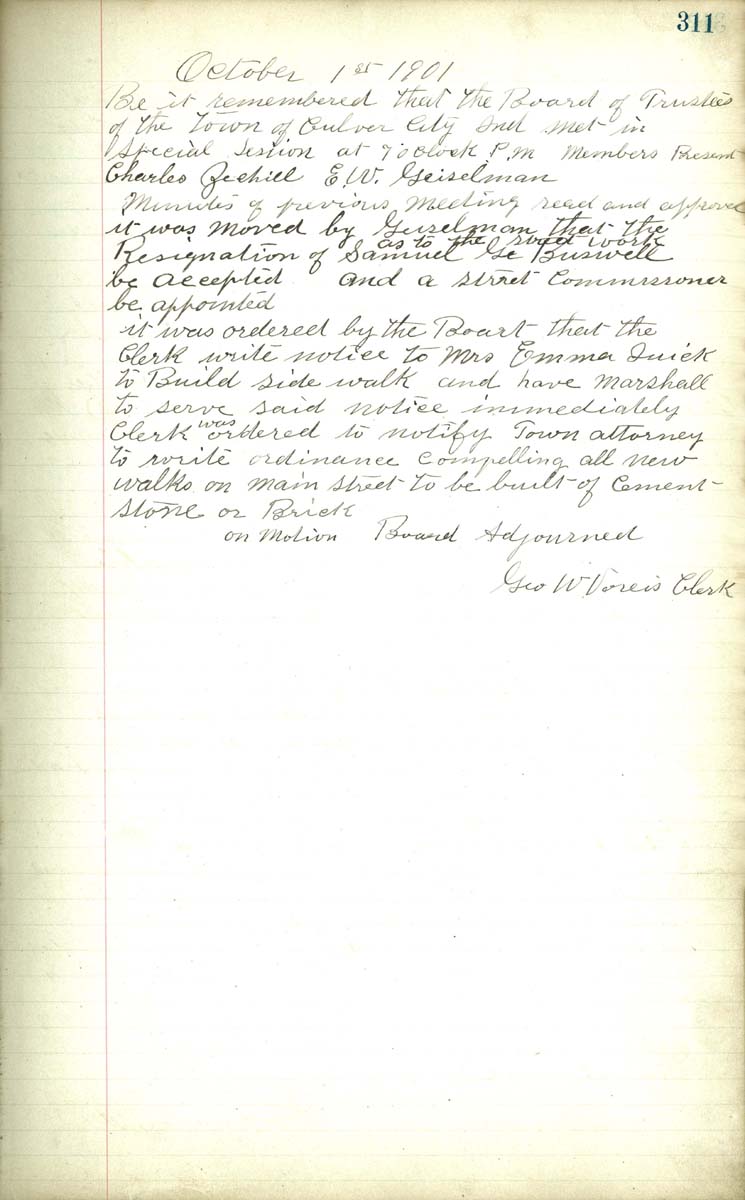 311
October 1st 1901
Be it remembered that the Board of Trustees
of the Town of Culver City Ind met in
Special Session at 7 o'clock P.M Members Present
Charles Zechiel E. W. Geiselman
Minutes of previous Meeting read and approved
it was moved by Geiselman that the
as to the road work
Resignation of Samuel Buswell
be accepted and a street Commissioner
be appointed
it was ordered by the Board that the
Clerk write notice to Mrs Emma Quick
to Build side walk and have Marshall
to serve said notice immediately
Clerk was ordered to notify Town attorney
to write ordinance Compelling all new
walks on Main street to be built of Cement
stone or Brick
on Motion Board Adjourned
Geo W. Voreis Clerk